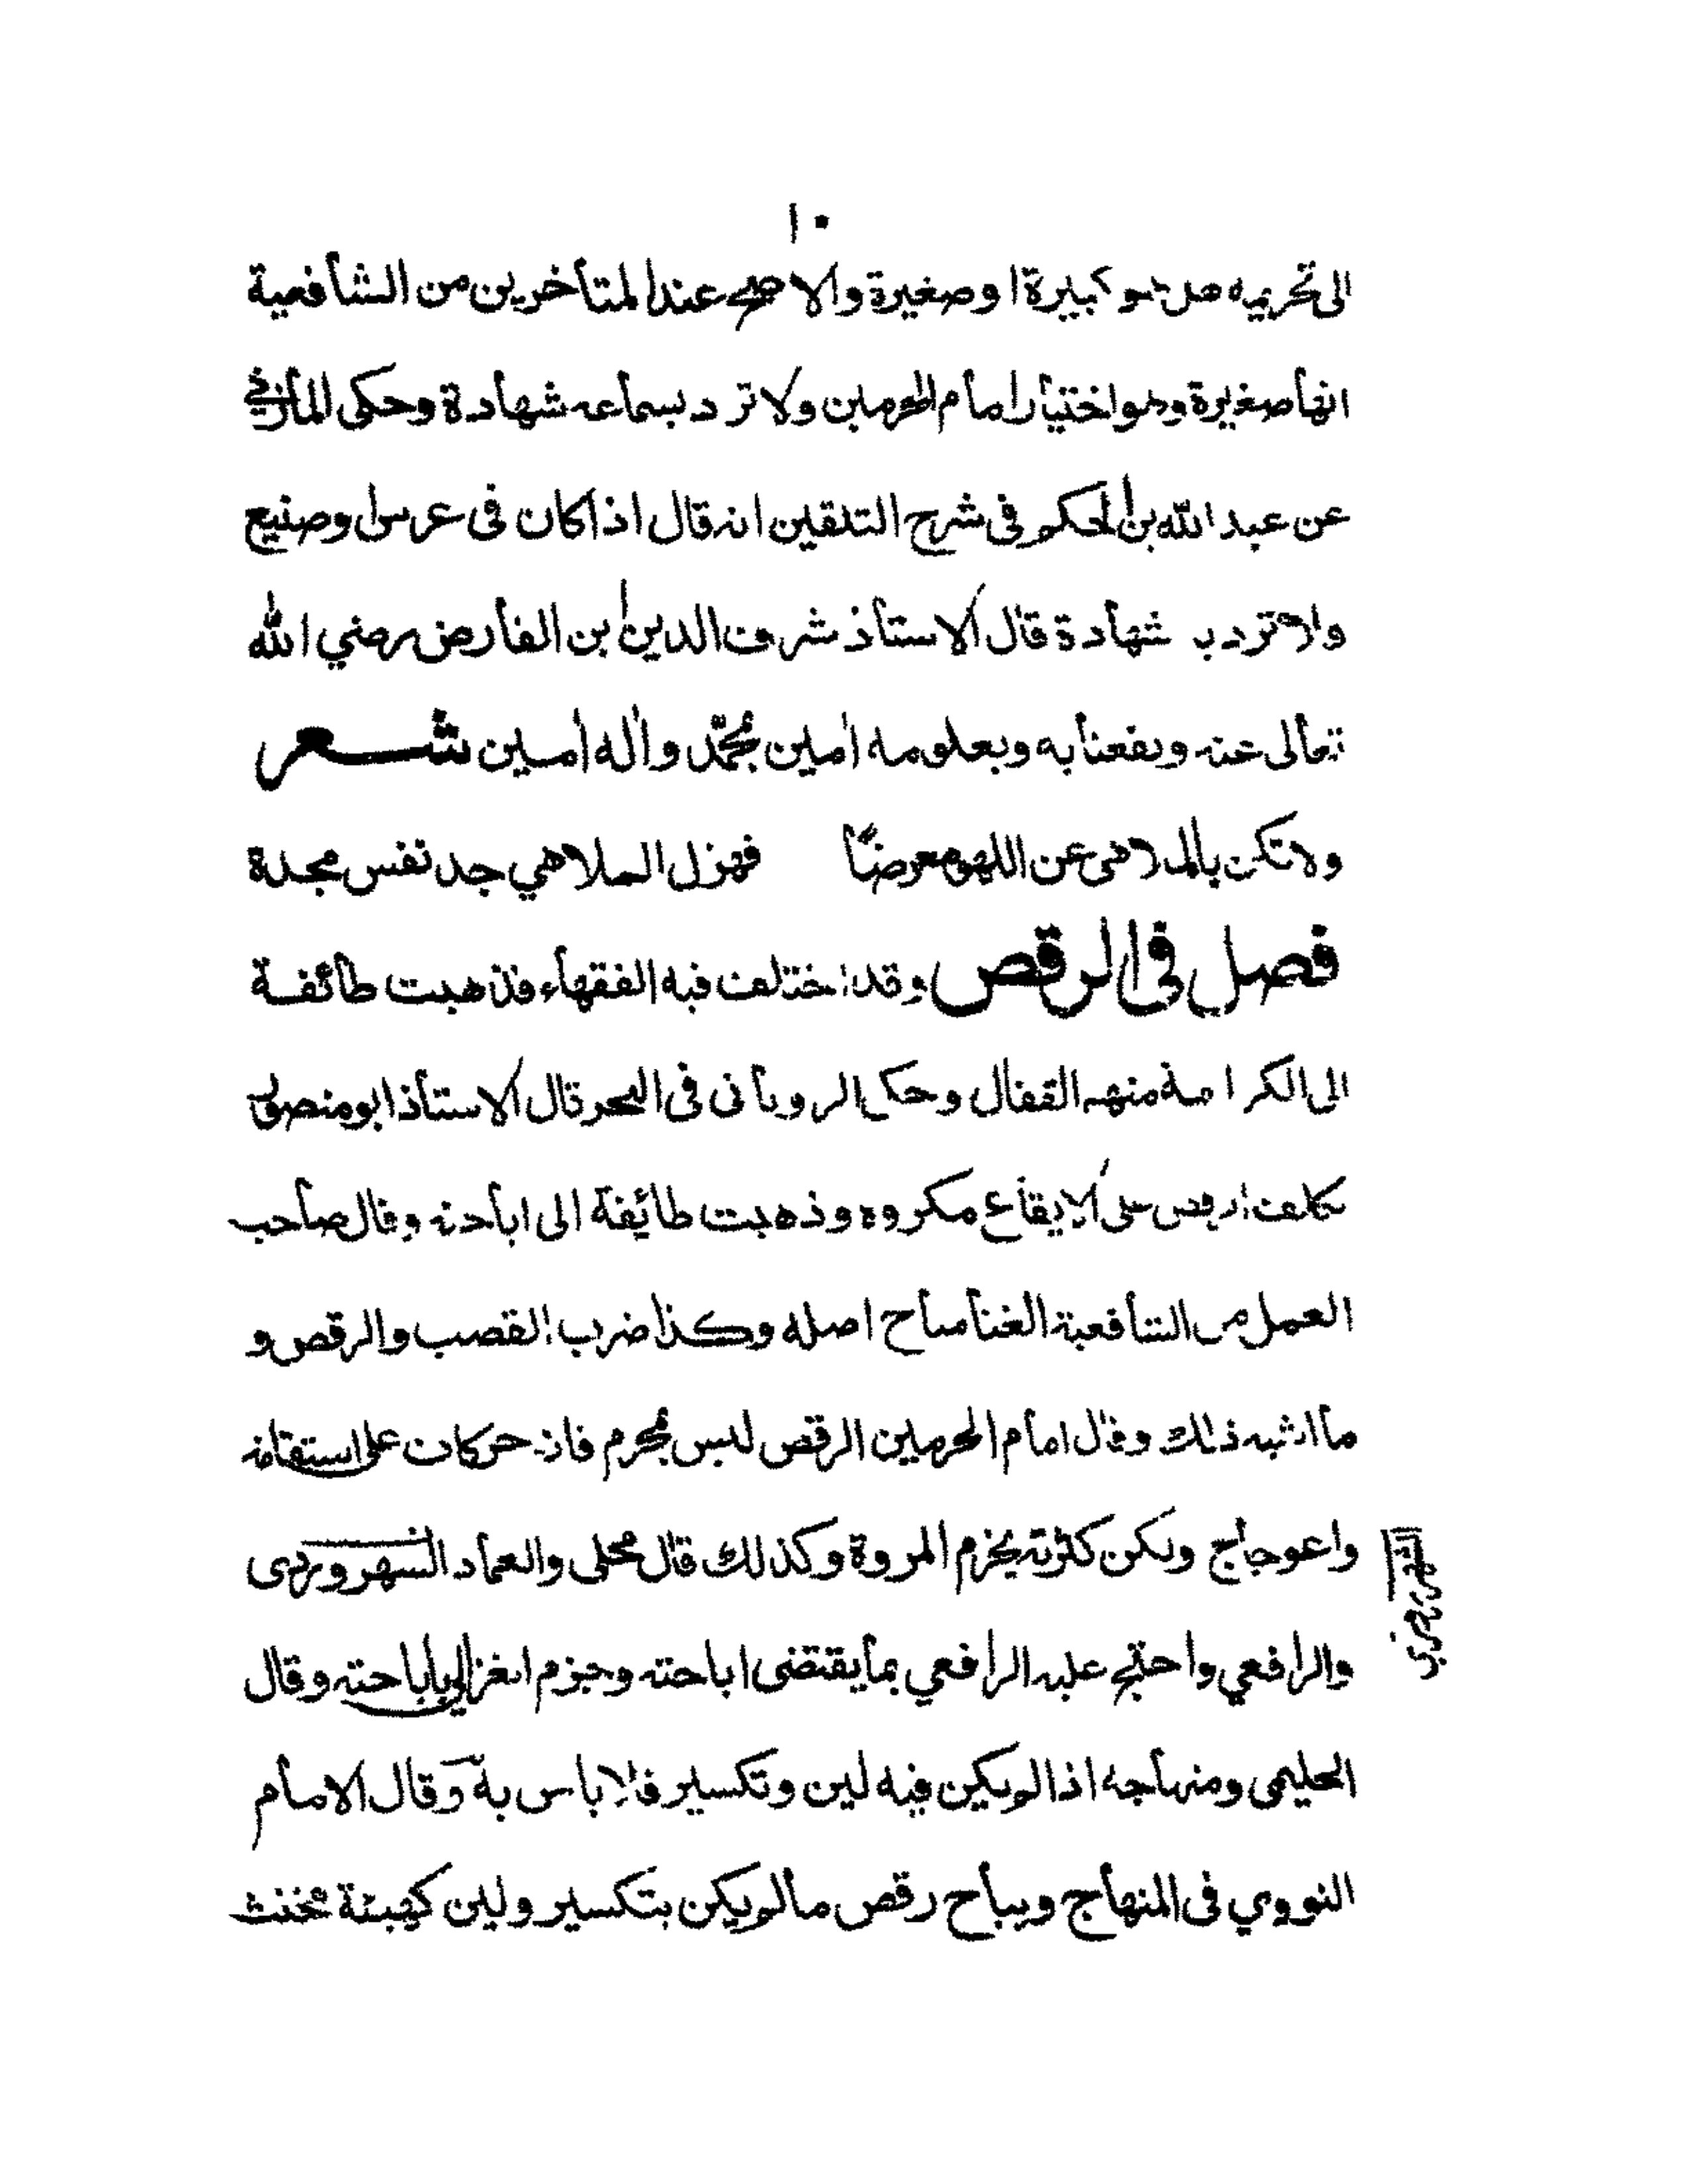 ١٠
الى تحريمه هل هو كبيرة او صغيرة والاصح عند المتأخرين من الشأفعية
انهأ صغيرة وهو اختيأر امأم الحرمين ولا ترد بسمأعه شهأدة وحكى المأزري
عن عبد الله بن الحكم فى شرح التلقين انه قال اذا كان فى عرس او صنيع
ولا ترد به شهأدة قأل الاستأذ شرف الدين ابن الفأرض رضي الله
تعألى عنه ونفعنأ به وبعلومه امين بمحمّد واله امين شعر
ولا تكن بالملاهى عن اللهو معرضًا فهزل الملاهي جد نفس مجدة
فصل فى الرقص وقد اختلف فيه الفقهأء فذهبت طأئفة
الى الكراهة منهم القفأل وحكى الرويأنى فى البحر قال الاستأذ ابو منصور
تكلف الرقص على الايقأع مكروه وذهبت طائفة الى ابأحته وقال صأحب
العمل من الشأفعية الغنأ مبأح اصله وكذا ضرب القصب والرقص و
مأ اشبه ذلك وقأل امأم الحرمين الرقص ليس بمحرم فانه حركات على استقامة
واعوجأج ولكن كثرته يخرم المروة وكذلك قأل محلى والعمأد السهروردى
والرافعي واحتج عليه الرافعي بمأ يقتضى اباحته وجزم الغزالي بأباحته وقال
الحليمى ومنهأجه اذا لم يكن فيه لين وتكسير فلا باس به وقال الامأم
النووي فى المنهأج ويبأح رقص مألم يكن بتكسير ولين كهيئة مخنث